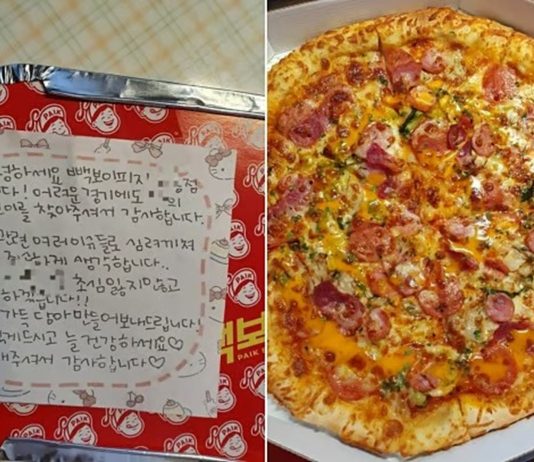 녕하세요 빽보이피자
다! 어려운 경기에도 점의
를 찾아주셔서 감사합니다
련 여러이슈들로 심려끼쳐
하게 생각합니다..
초심 잃지않고
하겠습니다!!
가득 담아 만들어보내드립니다!
게드시고 늘 건강하세요♡
해주셔서 감사합니다♡
PAIK
빽보
PAIK